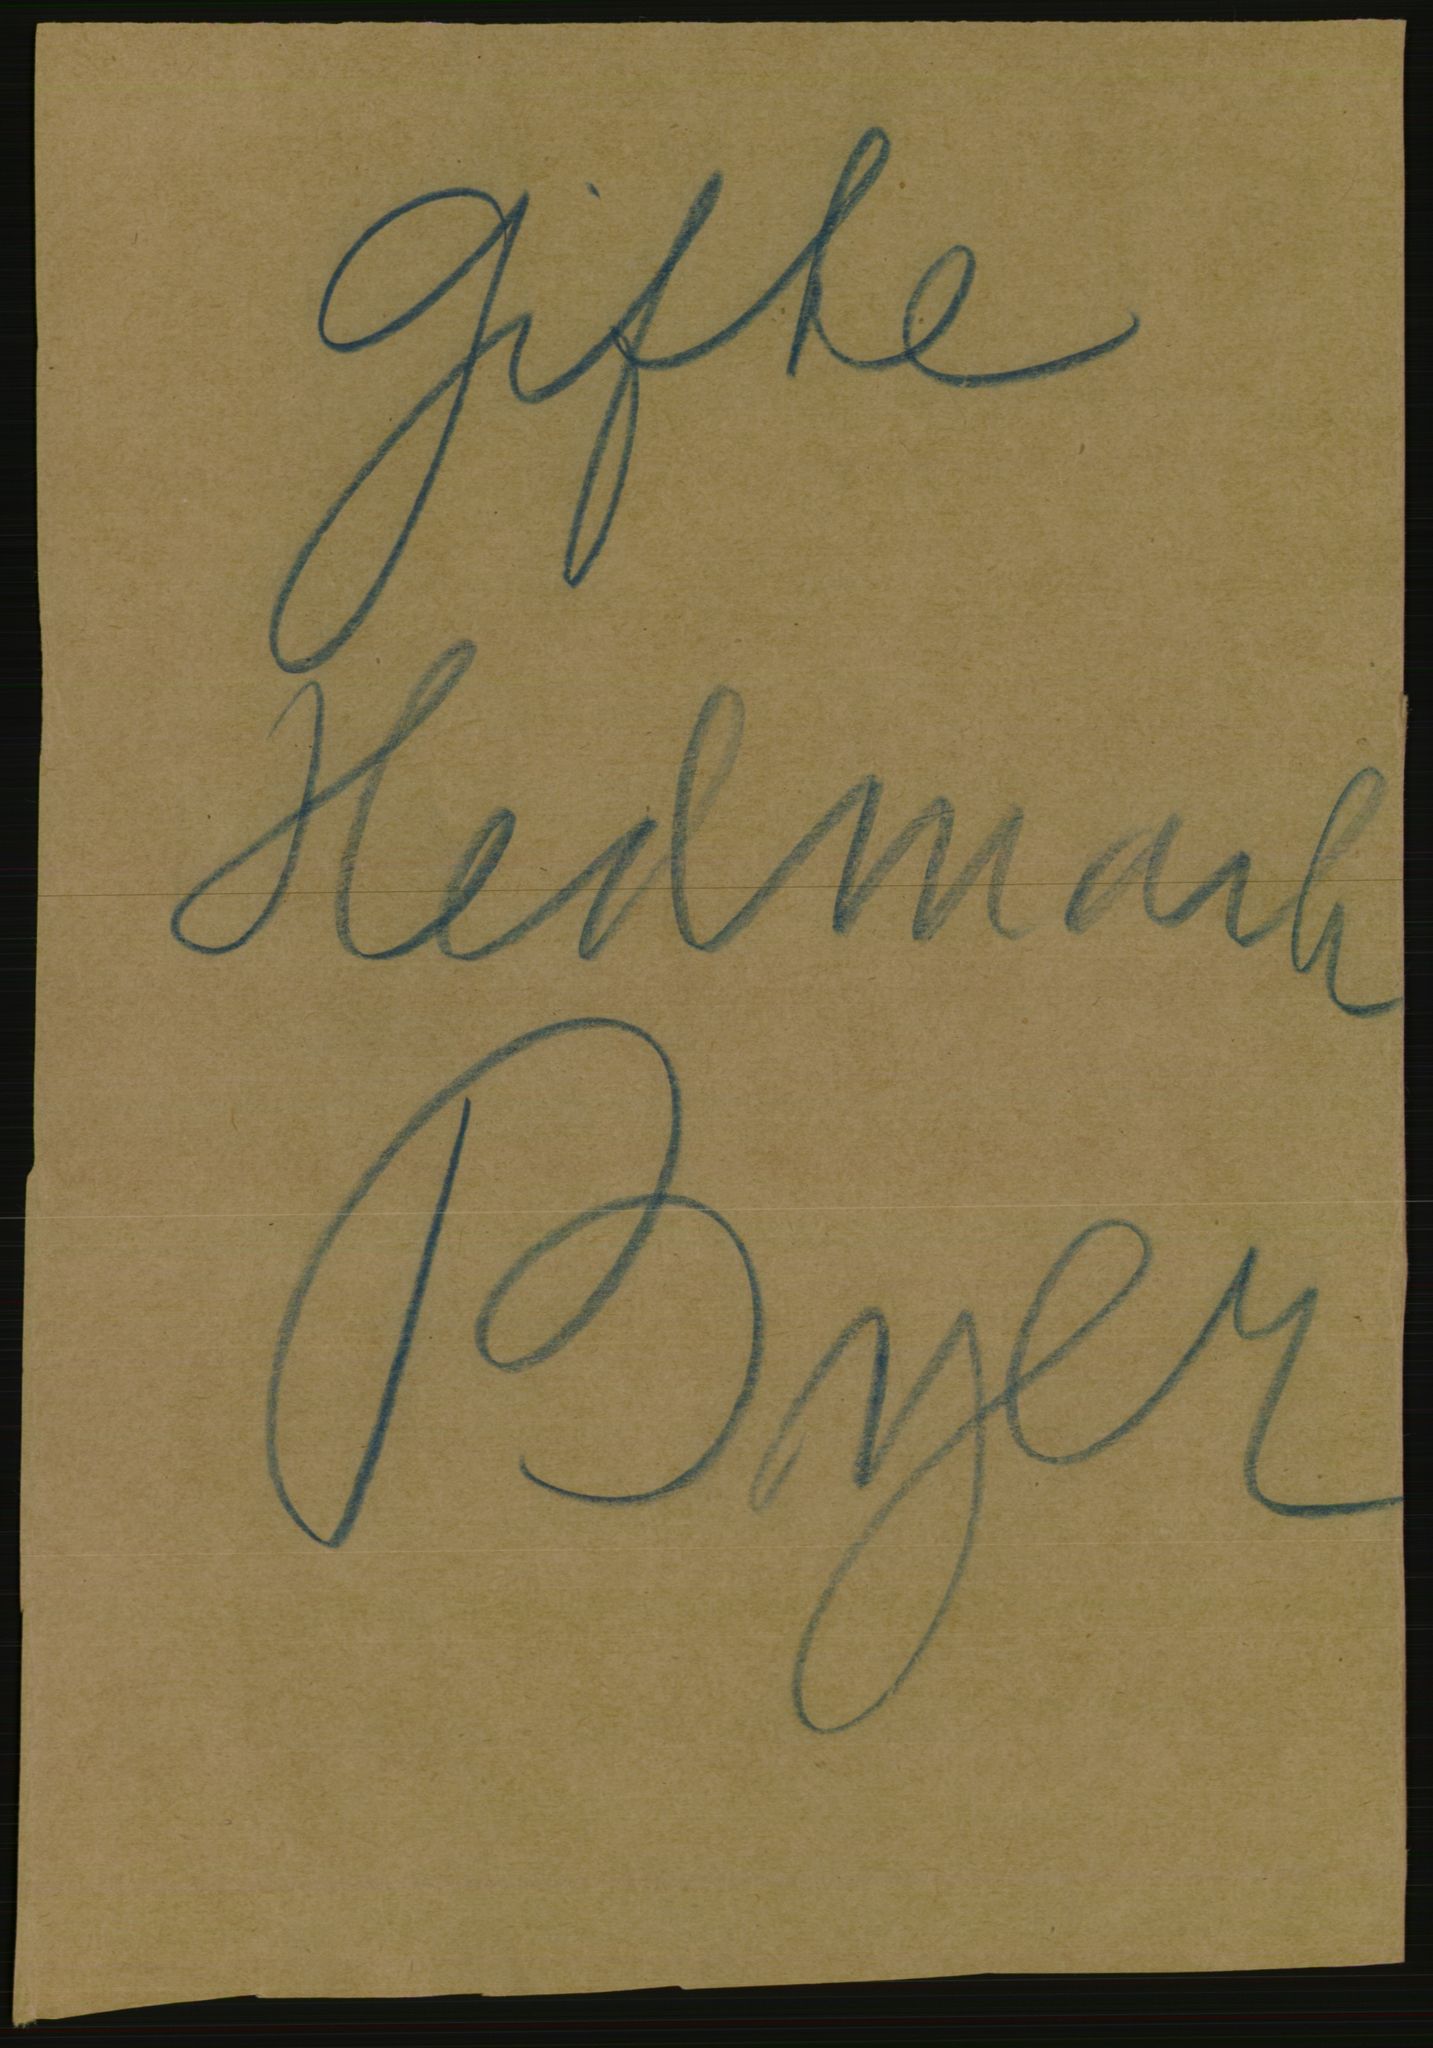 Gifte
Hedmark
Byer